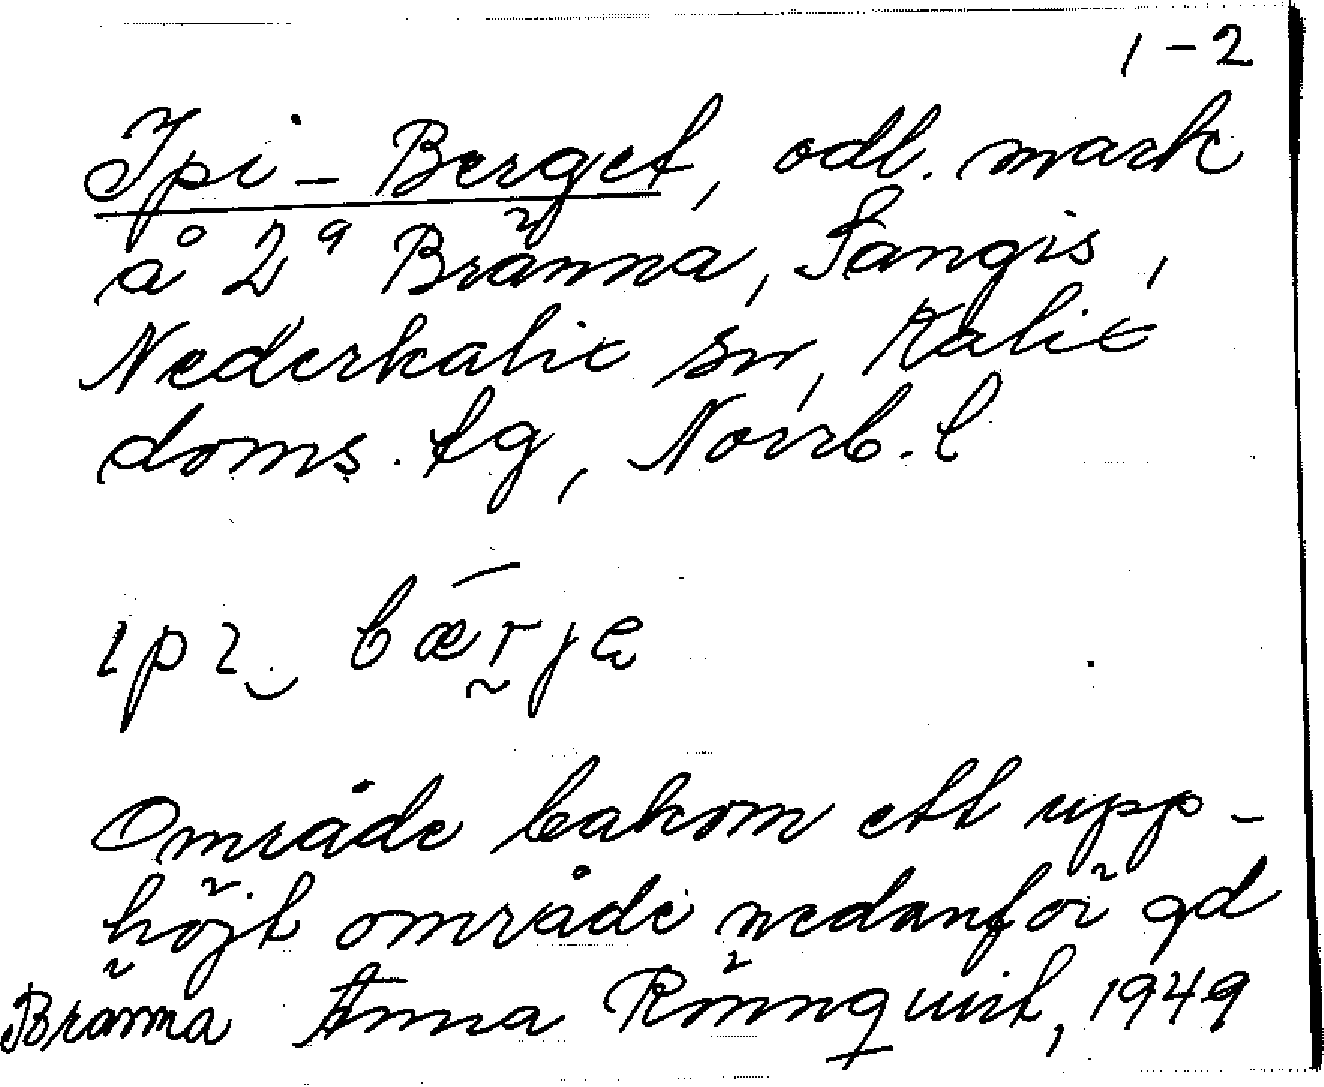 1-2
Ipi-Berget, odl. mark
å 2⁹ Bränna, Sangis,
Nederkalix sn, Kalix
doms. tg, Norrb. l
ɩpɩ‿ bǣr̰jɛ
Område bakom ett upp-
höjt område nedanför gd
Bränna Anna Rönnquist, 1949